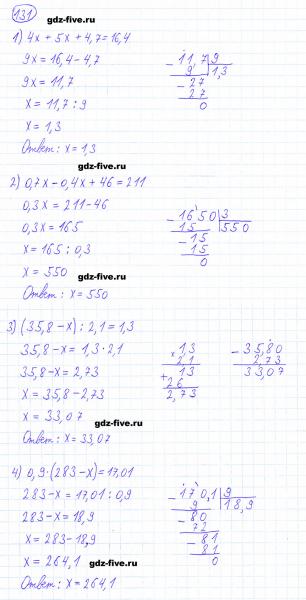 131
gdz-five.ru
1) 4x + 5x + 4,7 = 16,4
9x = 16,4 - 4,7
9x = 11,7
x = 11,7 : 9
x = 1,3
Ответ: x = 1,3
- 11,7 | 9
9 | 1,3
- 27
27
0
gdz-five.ru
2) 0,7x - 0,4x + 46 = 211
0,3x = 211 - 46
0,3x = 165
x = 165 : 0,3
x = 550
Ответ: x = 550
- 1650 | 3
15 | 550
- 15
15
0
gdz-five.ru
3) (35,8 - x) : 2,1 = 1,3
35,8 - x = 1,3 · 2,1
35,8 - x = 2,73
x = 35,8 - 2,73
x = 33,07
Ответ: x = 33,07
x 1,3
2,1
+ 13
26
2,73
- 35,80
2,73
33,07
gdz-five.ru
4) 0,9 · (283 - x) = 17,01
283 - x = 17,01 : 0,9
283 - x = 18,9
x = 283 - 18,9
x = 264,1
Ответ: x = 264,1
- 170,1 | 9
9 | 18,9
- 80
72
- 81
81
0
gdz-five.ru